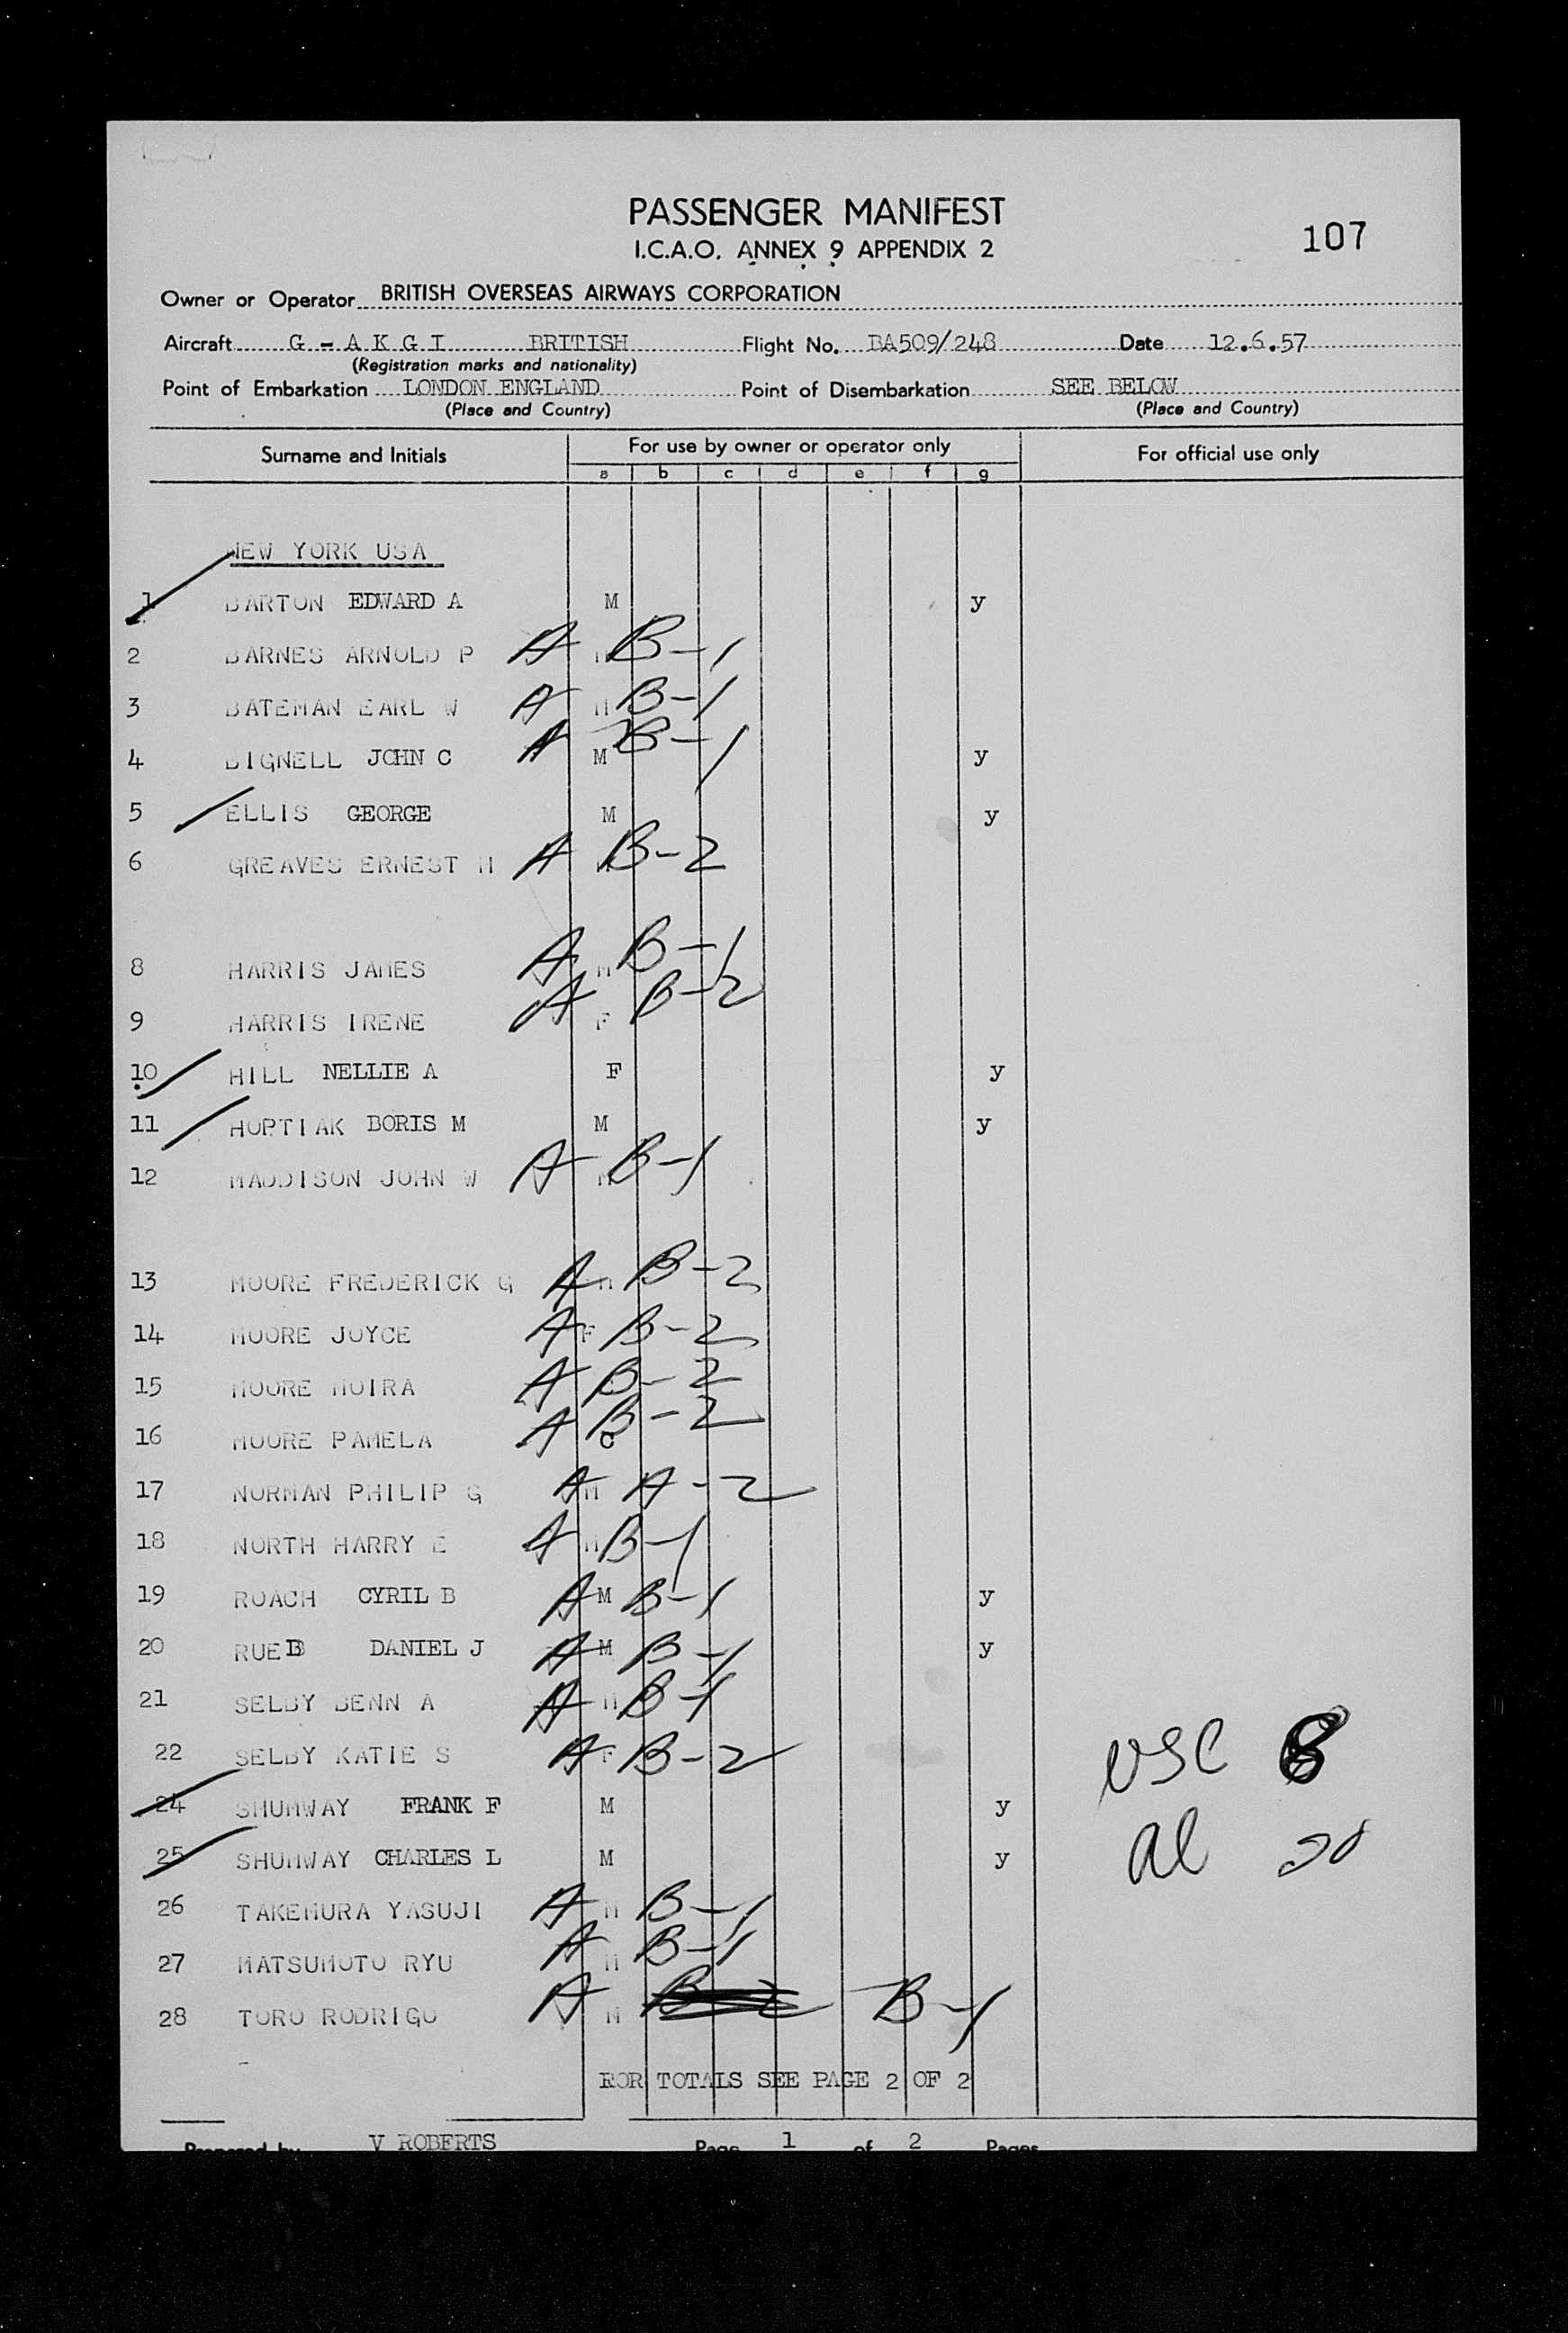 PASSENGER MANIFEST
I.C.A.O. ANNEX 9 APPENDIX 2
107
Owner or Operator BRITISH OVERSEAS AIRWAYS CORPORATION
Aircraft G - A K G I BRITISH Flight No. BA509/248 Date 12.6.57
(Registration marks and nationality)
Point of Embarkation LONDON ENGLAND Point of Disembarkation SEE BELOW
(Place and Country) (Place and Country)
Surname and Initials For use by owner or operator only For official use only
a b c d e f g
NEW YORK USA
1 BARTON EDWARD A M y
2 BARNES ARNOLD P A M B-1
3 BATEMAN EARL W A M B-1
4 BIGNELL JOHN C A M B-1 y
5 ELLIS GEORGE M y
6 GREAVES ERNEST H A B-2
8 HARRIS JAMES A M B-1
9 HARRIS IRENE A F B-2
10 HILL NELLIE A F y
11 HOPTIAK BORIS M M y
12 MADDISON JOHN W A M B-1
13 MOORE FREDERICK G A M B-2
14 MOORE JOYCE A F B-2
15 MOORE MOIRA A B-2
16 MOORE PAMELA A C B-2
17 NORMAN PHILIP G A M A-2
18 NORTH HARRY E A M B-1
19 ROACH CYRIL B A M B-1 y
20 RUEB DANIEL J A M B-1 y
21 SELBY BENN A A M B-1
22 SELBY KATIE S A F B-2
USC 8
24 SHUMWAY FRANK F M y
25 SHUMWAY CHARLES L M y
al 20
26 TAKEMURA YASUJI A M B-1
27 MATSUMOTO RYU A M B-1
28 TORO RODRIGO A M B-2 B-1
FOR TOTALS SEE PAGE 2 OF 2
Prepared by V ROBERTS Page 1 of 2 Pages